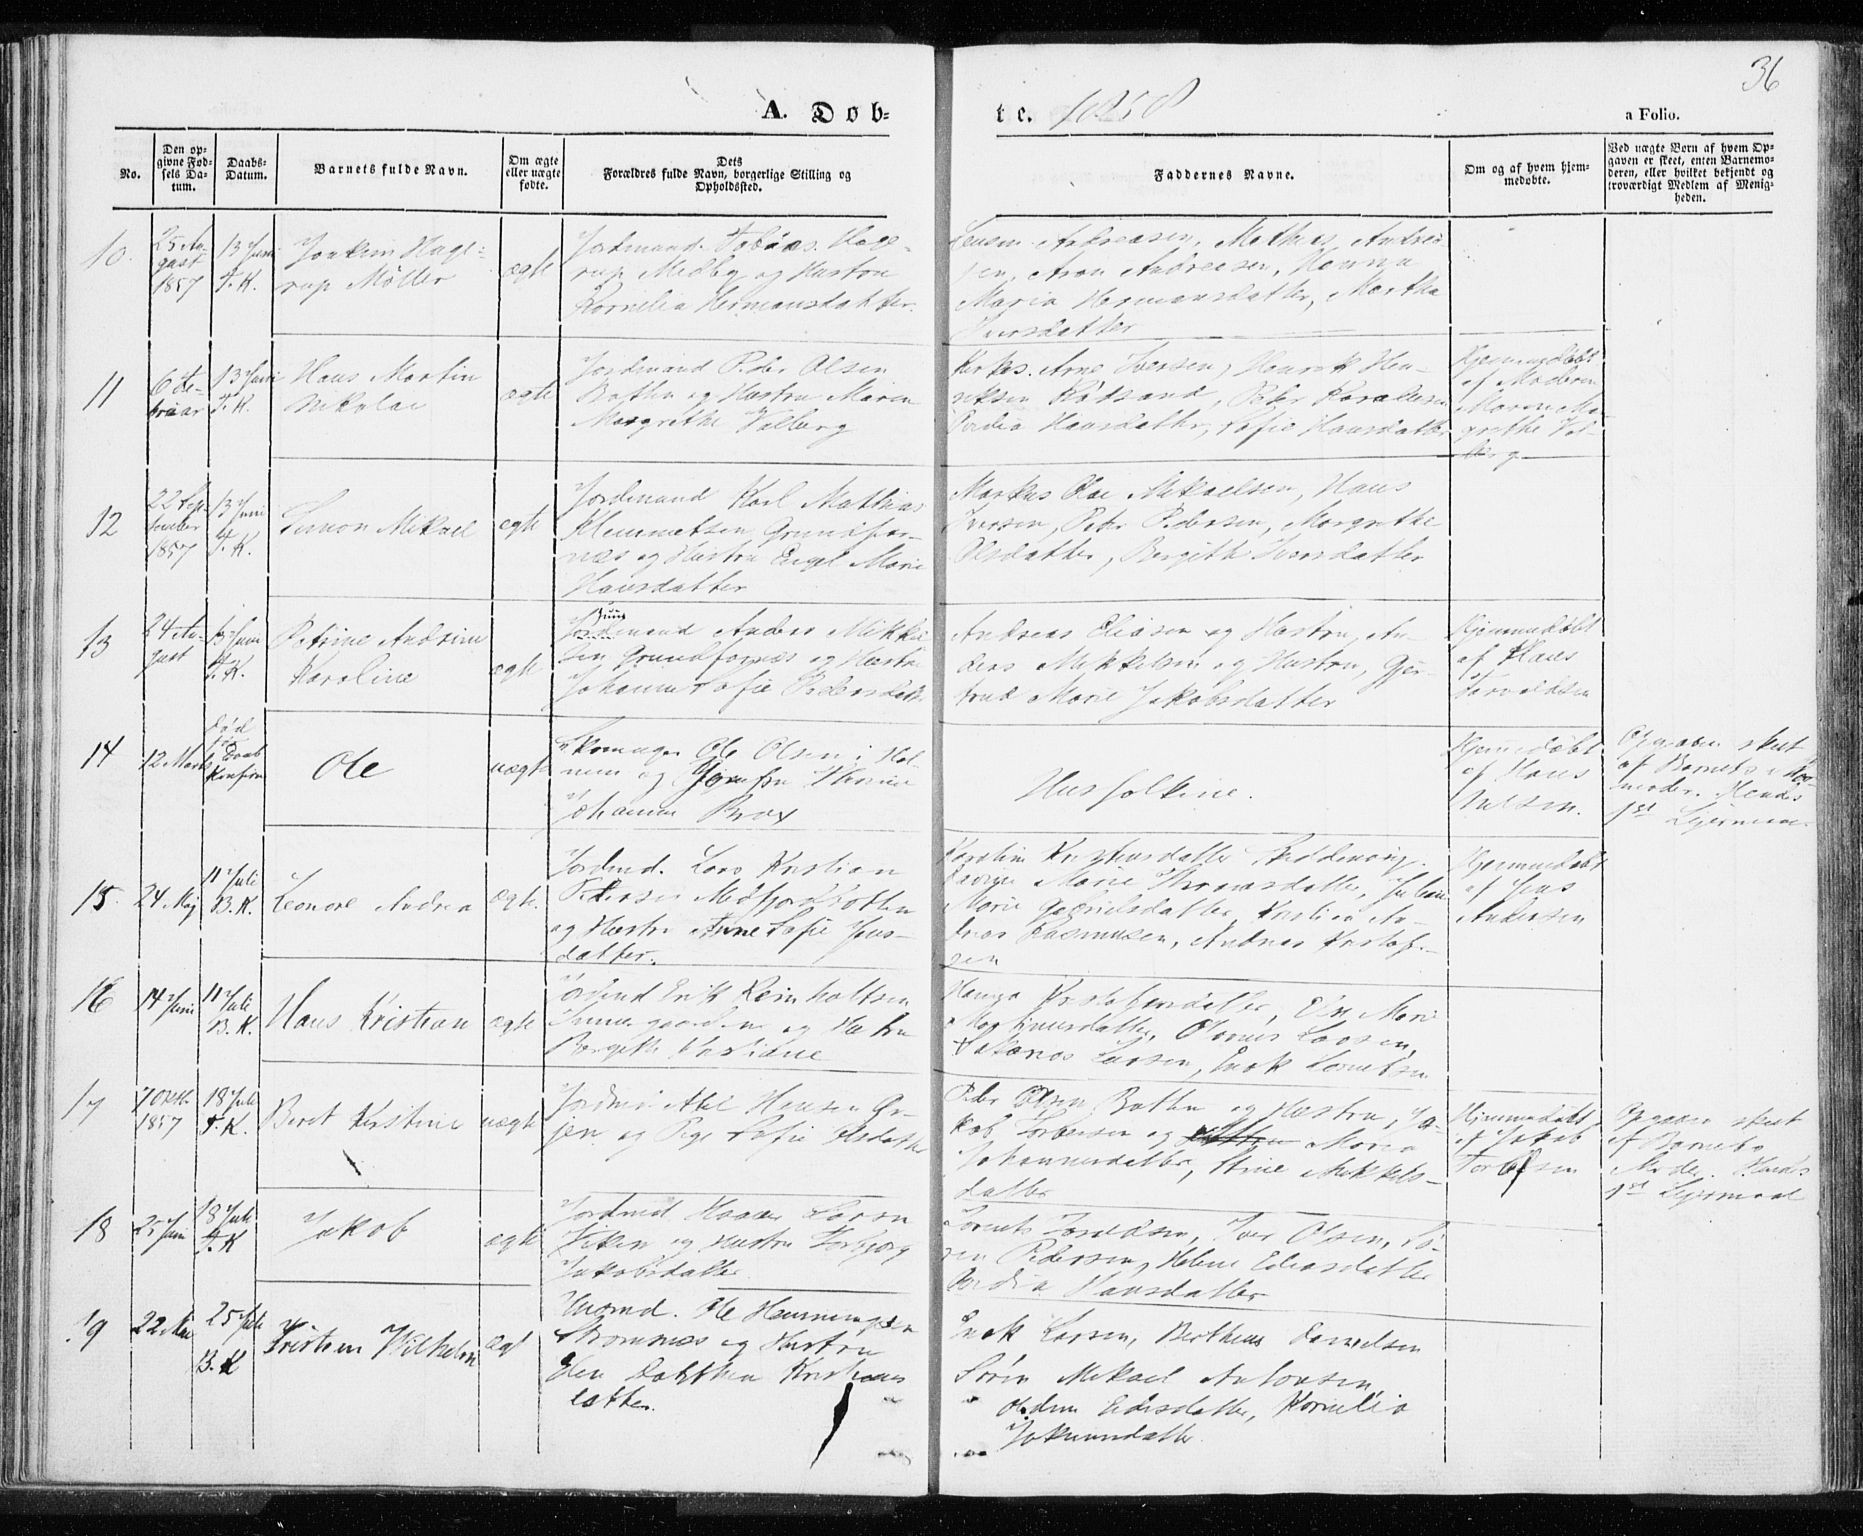 36
A. Døb-
te. 1858
a Folio.
No.
Den op-
givne Fød-
sels Da-
tum.
Daabs-
Datum.
Barnets fulde Navn.
Om ægte
eller uægte
fødte.
Dets
Forældres fulde Navn, borgerlige Stilling og
Opholdssted.
Faddernes Navne.
Om og af hvem hjem-
medøbte.
Ved uægte Børn af hvem Op-
gaven er skeet, enten Barnemo-
deren, eller hvilket bekjendt og
troværdigt Medlem af Menig-
heden.
10.
25 Au-
gust
1857
13 Juni
T. K.
Joakim Hage-
rup Møller
ægte
Jordmand Tobias Hage-
rup Medby og Hustru
Kornelia Hermansdatter.
Jensen Andreasen, Mathias Andrea
sen, Aron Andreasen, Hanna
Maria Hermansdatter, Martha
Iversdatter
11
6 Fe-
bruar
13 Juni
T. K.
Hans Martin
Nikolai
ægte
Jordmand Peder Olsen
Bothn og Hustru Maren
Margrethe Volberg
Kirkes. Arne Iversen, Henrik Hen-
riksen Rødsand, Peter
Hansdatter, Sofie Hansdatter
Hjemmedøbt
af Moderen
Maren Mar-
grethe Vol-
berg
12
22 Sep-
tember
1857
13 Juni
T. K.
Simon Mikael
ægte
Jordmand Karl Mathias
Klemmetsen Grundfar-
næs og Hustru Engel Marie
Hansdatter
Markus Ole Mikaelsen, Hans
Iversen, Peter Pedersen, Margrethe
Olsdatter, Birgith Iversdatter
13
24 Au-
gust
13 Juni
T. K.
Petrine Andrine
Karoline
ægte
Jordmand Anders Mikkel
sen Grundfarnæs og Hustru
Johanna Sofie Pedersdatt.
Andreas Eliasen og Hustru, An-
ders Mikkelsen og Hustru, Gjer-
trud Marie Jakobsdatter
Hjemmedøbt
af Hans
Torvaldsen
14
12 Marts
død
før
Daab
Ole
uægte
Skomager Ole Olsen i
og Jomfru
Johanna Brox
Husfolkene.
Hjemmedøbt
af Hans
Nilsen.
Opgaven skeet
af Barnets
moder. Hendes
1st Leiermaal
15.
24 Mai
11 Juli
B. K.
Leonore Andrea
ægte.
Jordmd. Lars Kristian
Pedersen Medfjordbotten
og Hustru Anne Sofie Jens-
datter.
Karoline Kristensdatter
Marie Thomasdatter, Juliane
Marie Gabrielsdatter, Kristian An-
dreas Rasmusen, Andreas Kristof-
sen
Hjemmedøbt
af Jens
Andersen
16
14 Juni
11 Juli
B. K.
Hans Kristian
ægte
Jordmd Erik Reinholtsen
Innergaarden og Hustru
Bergitte Kristiane
Hansa Kristofersdatter, Elen Marie
Martinusdatter, Larsen,
Larsen, Enok
17
7 Octb
1857
18 Juli
T. K.
Beret Kirstine
uægte
Jordmd Abel Hansen Ør-
jen og Pige Sofie Olsdatter
Peder Olsen Bothn og Hustru, Ja-
kob Torbersen og Maria
Johannesdatter, Stine Mikkels-
datter
Hjemmedøbt
af Jakob
Torbersen
Opgaven skeet
af Barnets
Moder. Hendes
1st Leiermaal
18
25 Juni
18 Juli
T. K
Jakob
ægte
Jordmd Larsn
Viken og Hustru Torbjørg
Jakobsdatter
Lorents Toraldsen, Iver Olsen, Sø-
ren Pedersen, Helene Eliasdatter
Hansdatter
19
22 Mai
25 Juli
B. K
Kristian Vilhelm
ægt
Huusmd. Ole Henningsen
Strømnæs og Hustru
Elen Dorthea Kristians
datter.
Enok Larsen, Bertheus Danielsen
Søren Mikael Antonsen
Edisdatter, Kornelia
Jokumsdatter